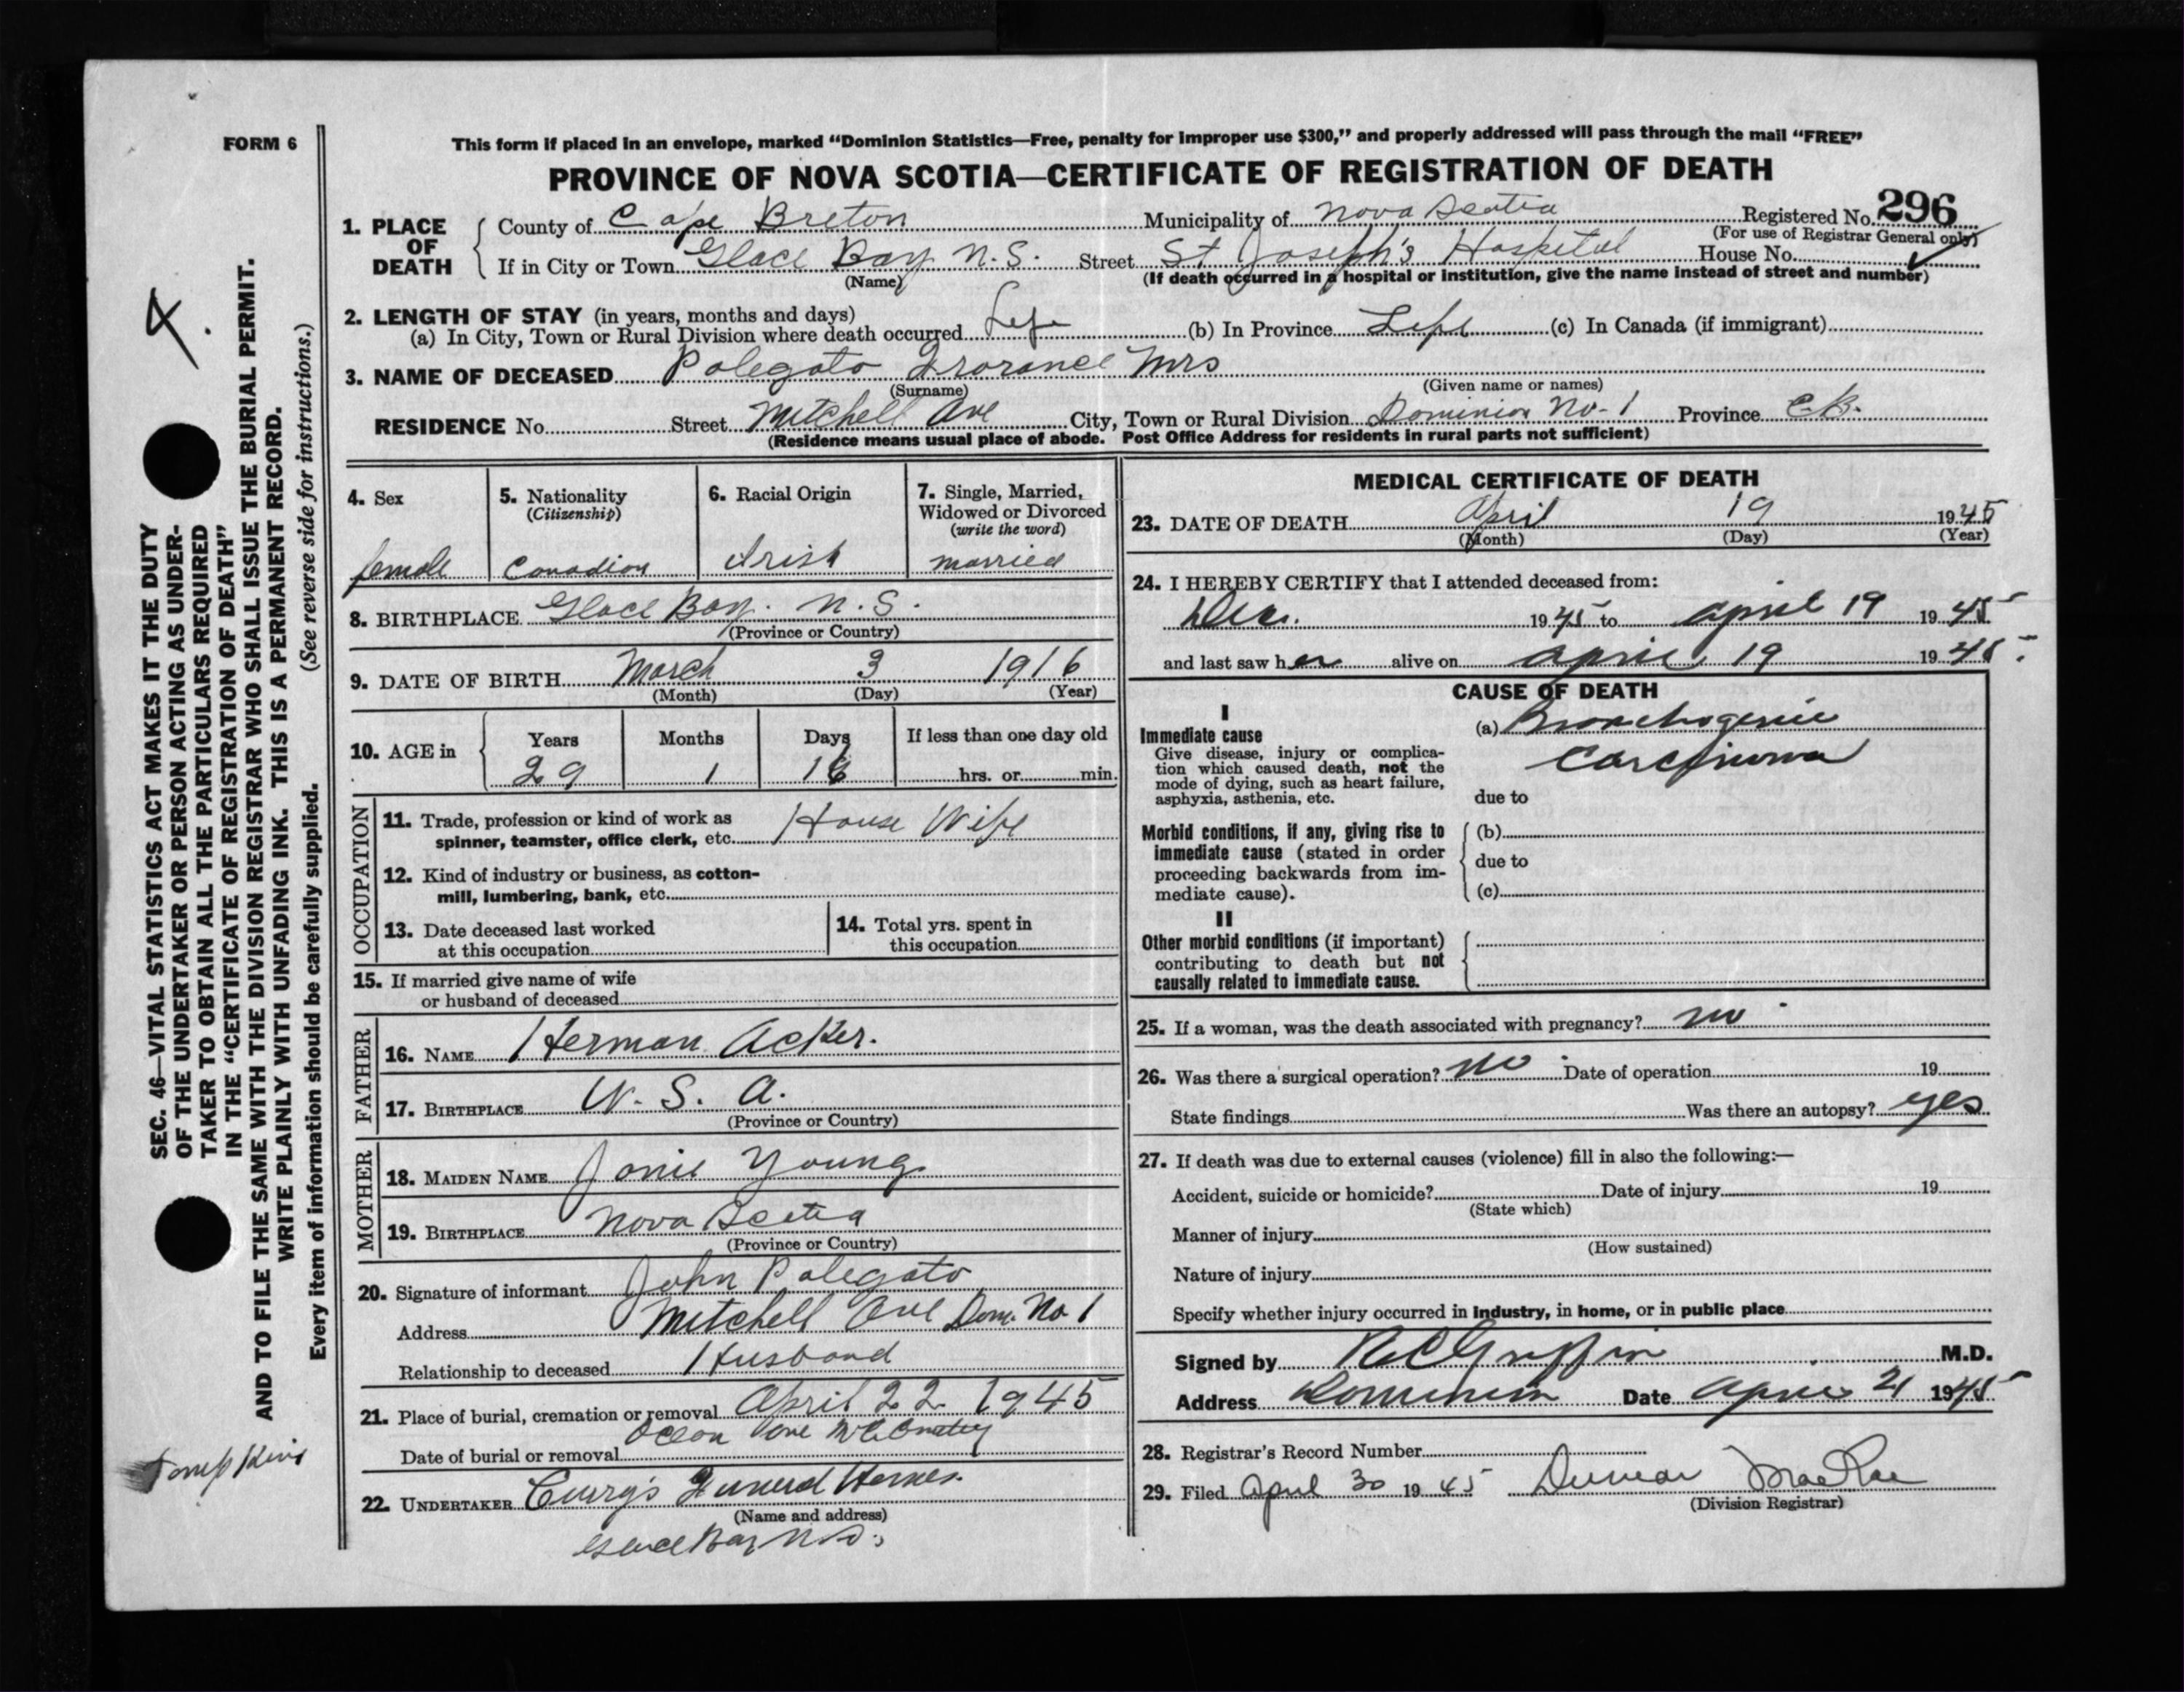 FORM 6
This form if placed in an envelope, marked “Dominion Statistics—Free, penalty for improper use $300,” and properly addressed will pass through the mail “FREE”
PROVINCE OF NOVA SCOTIA—CERTIFICATE OF REGISTRATION OF DEATH
1. PLACE OF DEATH
County of Cape Breton Municipality of Nova Scotia Registered No. 296
(For use of Registrar General only)
If in City or Town Glace Bay N.S. Street St Joseph's Hospital House No.
(Name) (If death occurred in a hospital or institution, give the name instead of street and number)
2. LENGTH OF STAY (in years, months and days)
(a) In City, Town or Rural Division where death occurred Life (b) In Province Life (c) In Canada (if immigrant)
3. NAME OF DECEASED Polegato Mrs
(Surname) (Given name or names)
RESIDENCE No. Street Mitchell Ave City, Town or Rural Division Dominion No-1 Province C.B.
(Residence means usual place of abode. Post Office Address for residents in rural parts not sufficient)
4. Sex
female
5. Nationality
(Citizenship)
Canadian
6. Racial Origin
Irish
7. Single, Married,
Widowed or Divorced
(write the word)
married
8. BIRTHPLACE Glace Bay. N.S.
(Province or Country)
9. DATE OF BIRTH March 3 1916
(Month) (Day) (Year)
10. AGE in
Years Months Days If less than one day old
29 1 16 hrs. or min.
OCCUPATION
11. Trade, profession or kind of work as
spinner, teamster, office clerk, etc. House Wife
12. Kind of industry or business, as cotton-
mill, lumbering, bank, etc.
13. Date deceased last worked
at this occupation
14. Total yrs. spent in
this occupation
15. If married give name of wife
or husband of deceased
FATHER
16. NAME Herman Acker.
17. BIRTHPLACE U. S. A.
(Province or Country)
MOTHER
18. MAIDEN NAME Janie Young
19. BIRTHPLACE Nova Scotia
(Province or Country)
20. Signature of informant John Polegato
Address Mitchell Ave Dom. No 1
Relationship to deceased Husband
21. Place of burial, cremation or removal April 22 1945
Date of burial or removal Ocean
22. UNDERTAKER Curry's Funeral Homes.
(Name and address)
Glace Bay N.S.
MEDICAL CERTIFICATE OF DEATH
23. DATE OF DEATH April 19 1945
(Month) (Day) (Year)
24. I HEREBY CERTIFY that I attended deceased from:
Dec. 1945 to April 19 1945
and last saw her alive on April 19 1945.
CAUSE OF DEATH
I
Immediate cause
Give disease, injury or complica-
tion which caused death, not the
mode of dying, such as heart failure,
asphyxia, asthenia, etc.
(a) Bronchogenic
Carcinoma
due to
Morbid conditions, if any, giving rise to
immediate cause (stated in order
proceeding backwards from im-
mediate cause).
(b)
due to
(c)
II
Other morbid conditions (if important)
contributing to death but not
causally related to immediate cause.
25. If a woman, was the death associated with pregnancy? no
26. Was there a surgical operation? no Date of operation 19
State findings Was there an autopsy? yes
27. If death was due to external causes (violence) fill in also the following:—
Accident, suicide or homicide? Date of injury 19
(State which)
Manner of injury
(How sustained)
Nature of injury
Specify whether injury occurred in industry, in home, or in public place
Signed by Griffin M.D.
Address Dominion Date April 21 1945
28. Registrar's Record Number
29. Filed April 30 1945 Duncan MacRae
(Division Registrar)
SEC. 46—VITAL STATISTICS ACT MAKES IT THE DUTY
OF THE UNDERTAKER OR PERSON ACTING AS UNDER-
TAKER TO OBTAIN ALL THE PARTICULARS REQUIRED
IN THE “CERTIFICATE OF REGISTRATION OF DEATH”
AND TO FILE THE SAME WITH THE DIVISION REGISTRAR WHO SHALL ISSUE THE BURIAL PERMIT.
WRITE PLAINLY WITH UNFADING INK. THIS IS A PERMANENT RECORD.
Every item of information should be carefully supplied. (See reverse side for instructions.)